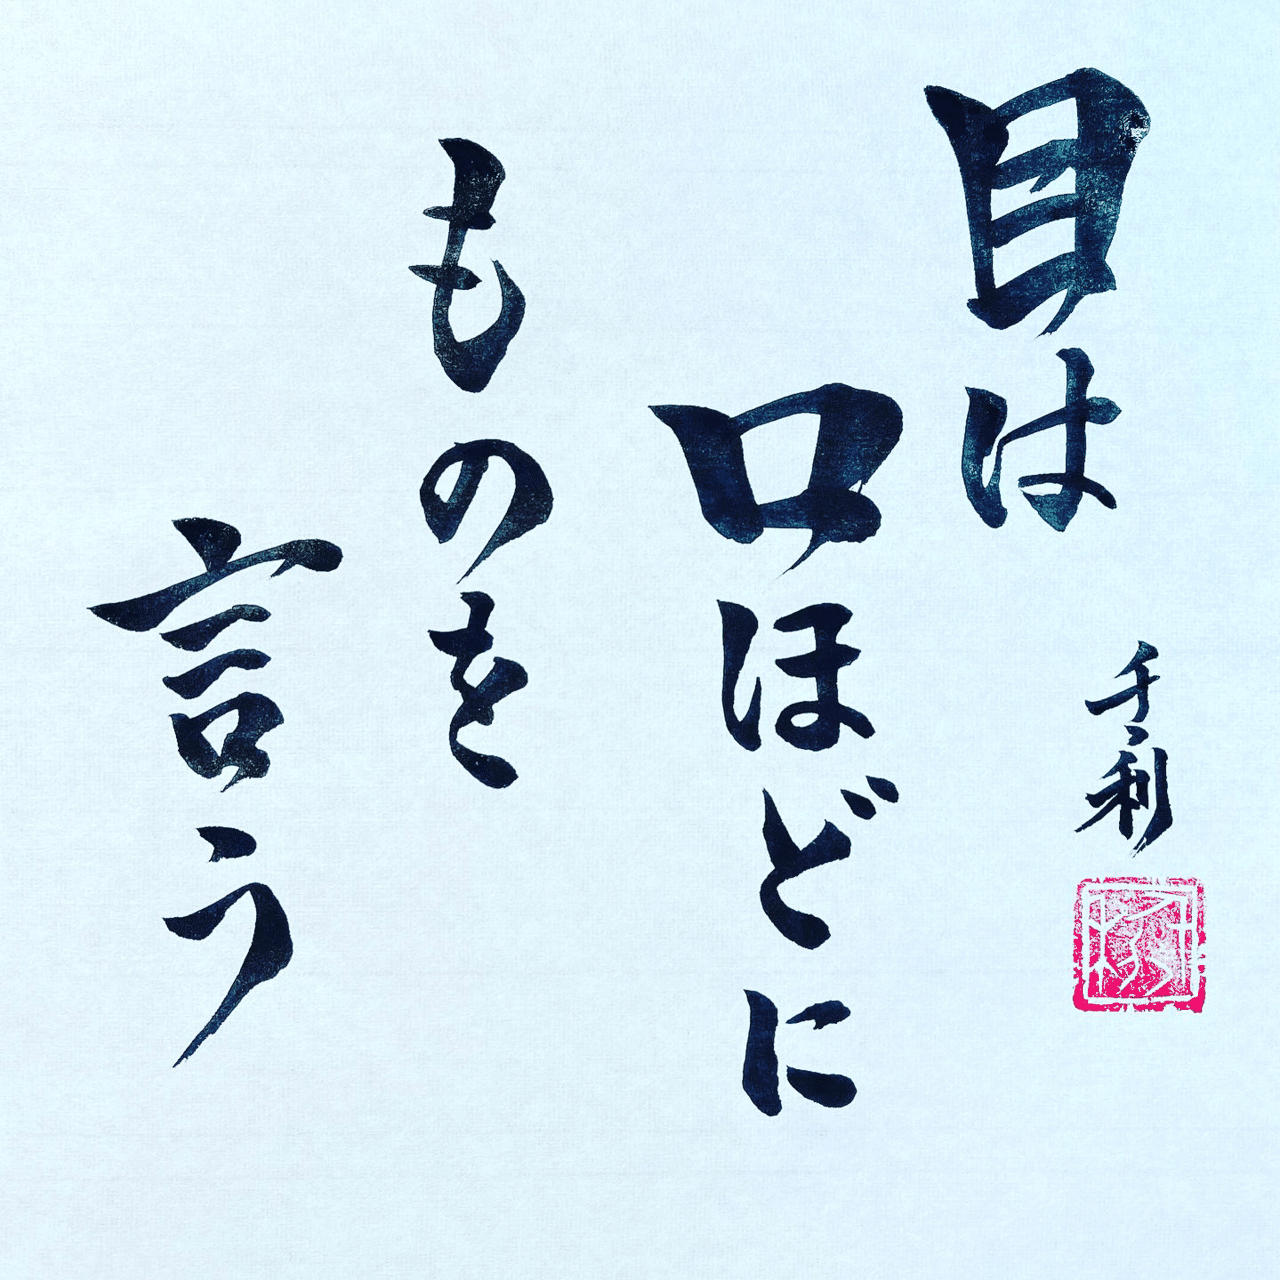 目は
口ほどに
ものを
言う
千利